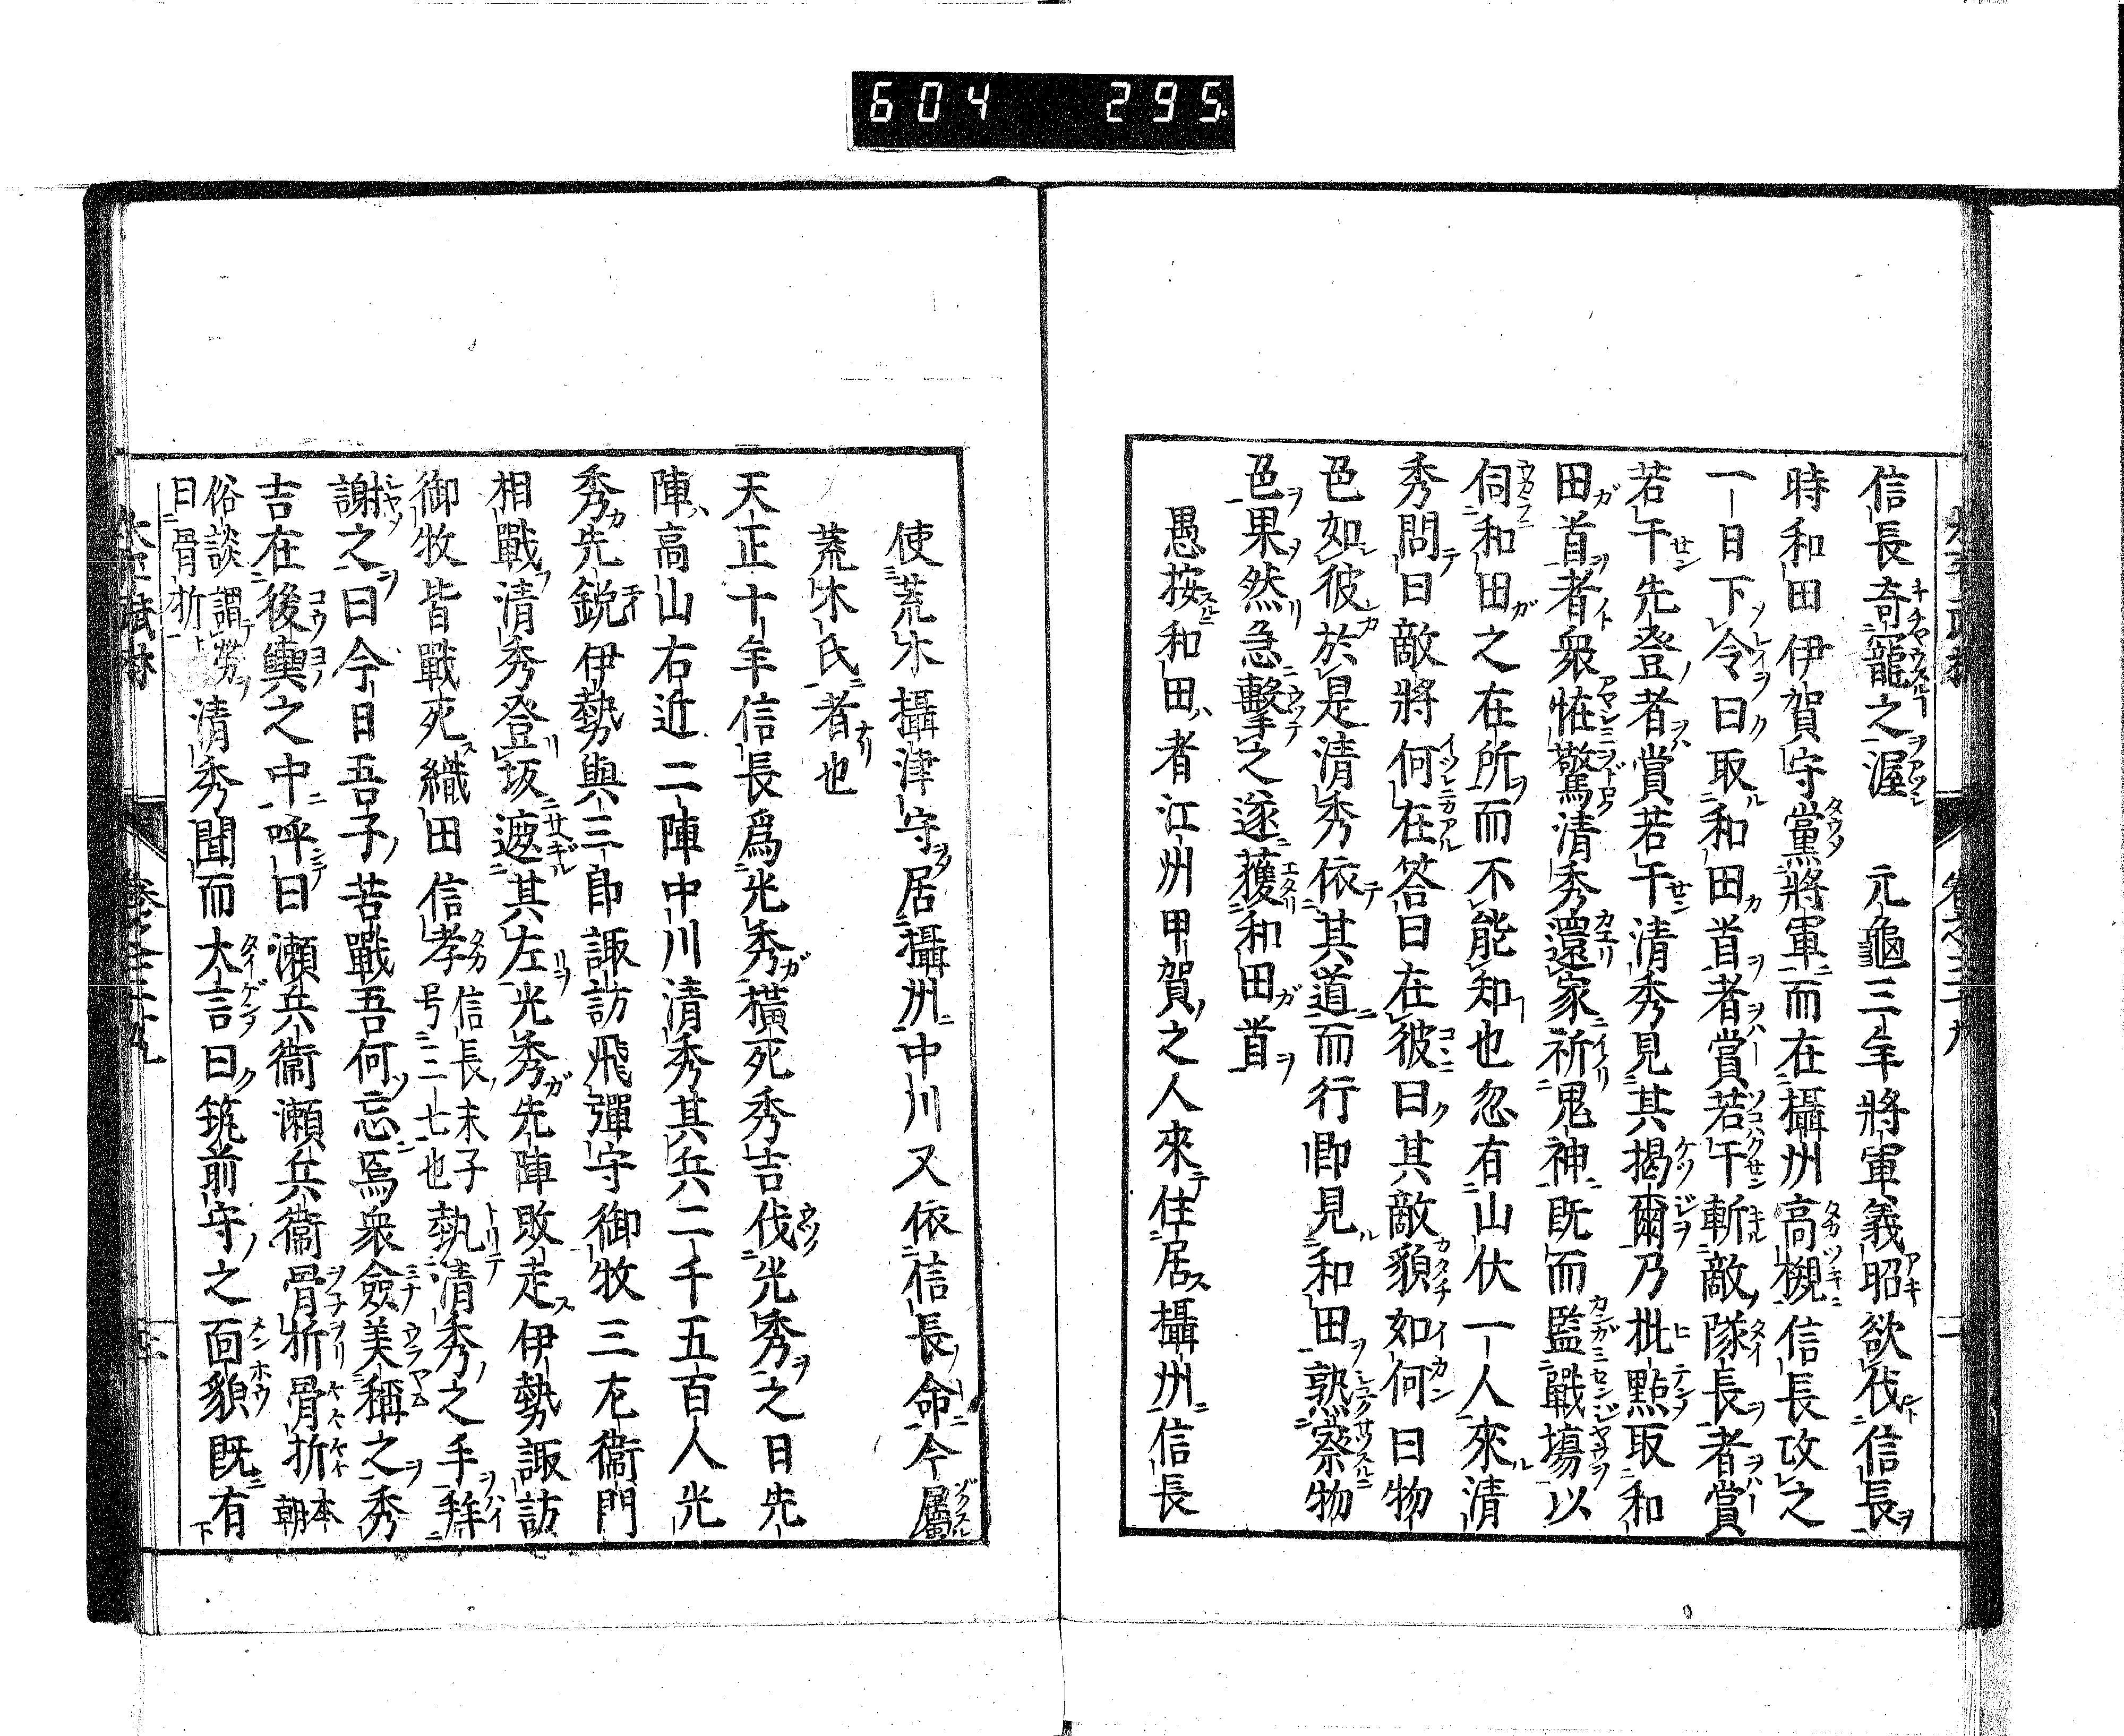 604 295
信長奇寵之渥　元龜三年將軍義昭欲伐信長
時和田伊賀守黨將軍而在攝州高槻信長攻之
一日下令曰取和田首者賞若干斬敵隊長者賞
若干先登者賞若干清秀見其揭爾乃批點取和
田首者衆恠驚清秀還家祈鬼神既而監戰塲以
伺和田之在所而不能知也忽有山伏一人來清
秀問曰敵將何在答曰在彼曰其敵貌如何曰物
色如彼於是清秀依其道而行即見和田熟察物
色果然急擊之遂獲和田首
愚按和田者江州甲賀之人來住居攝州信長
使荒木攝津守居攝州中川又依信長命今屬
荒木氏者也
天正十年信長爲光秀橫死秀吉伐光秀之日先
陣高山右近二陣中川清秀其兵二千五百人光
秀先銳伊勢與三郎諏訪飛彈守御牧三左衞門
相戰清秀登坂遮其左光秀先陣敗走伊勢諏訪
御牧皆戰死織田信孝信長末子号三七也執清秀之手拜
謝之曰今日吾子苦戰吾何忘焉衆僉美稱之秀
吉在後輿之中呼曰瀬兵衞瀬兵衞骨折骨折本朝
俗談謂勞曰骨折清秀聞而大言曰筑前守之面貌既有下